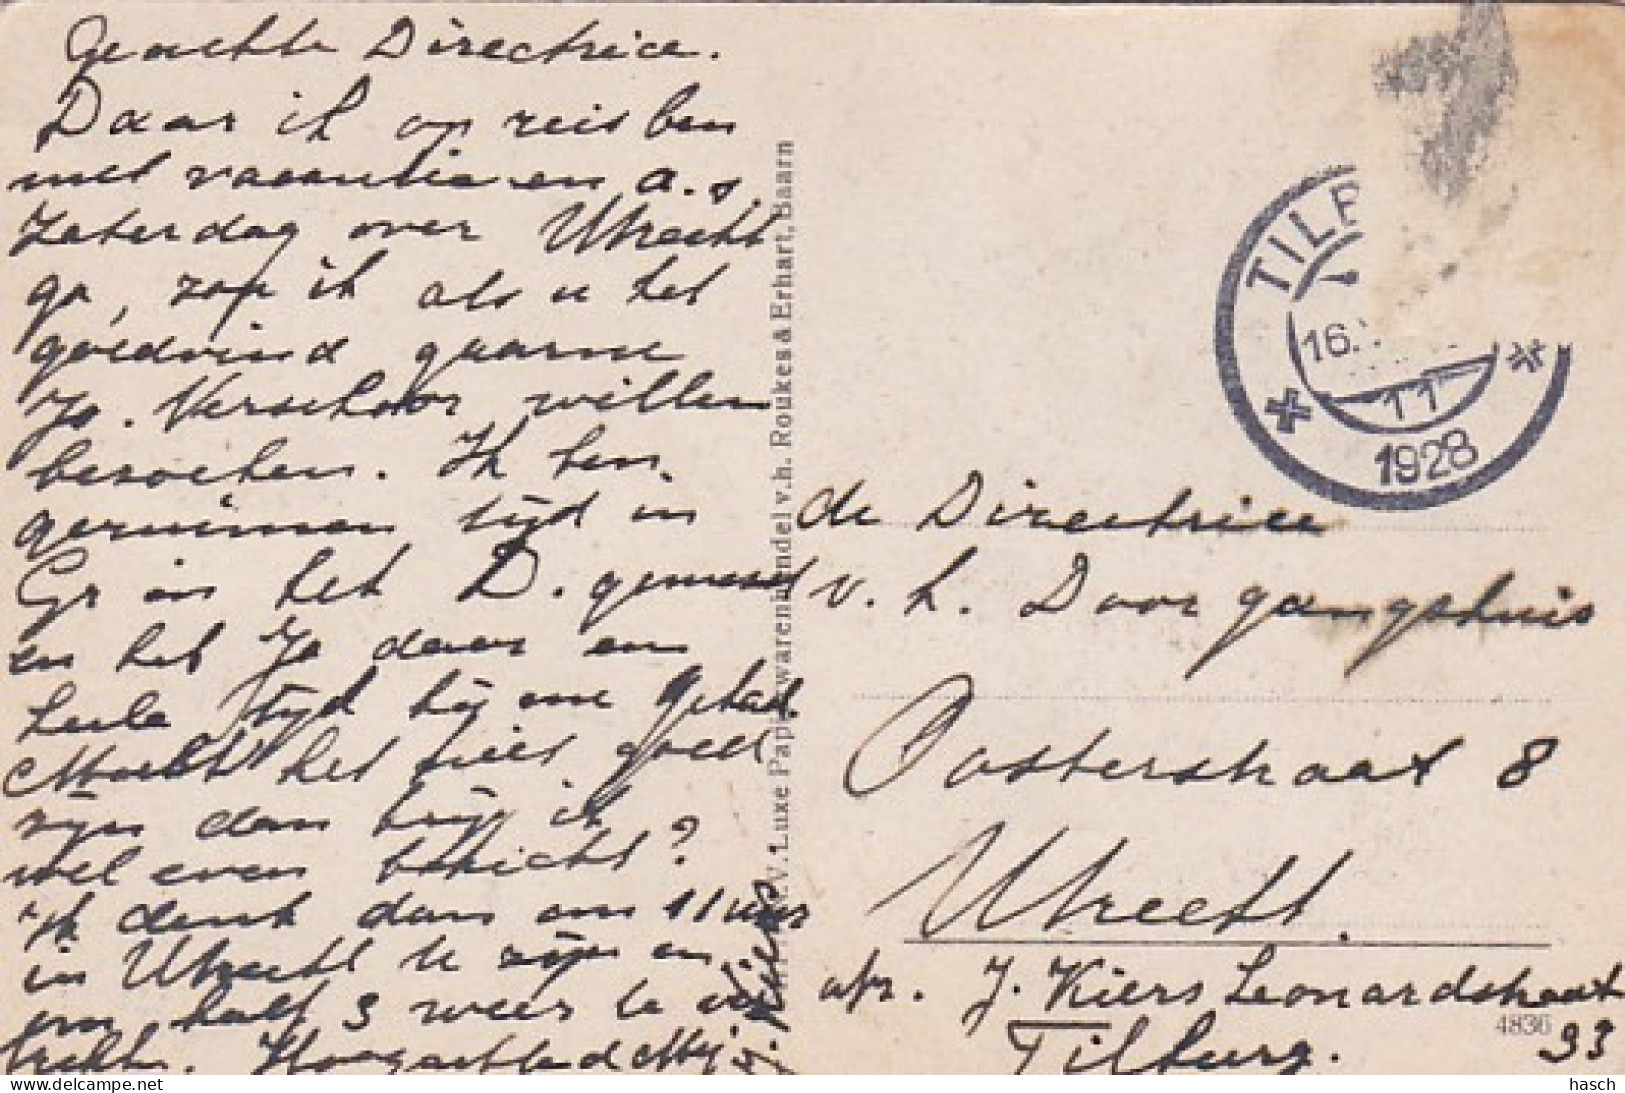 Geachte Directrice.
Daar ik op reis ben
met vacantie en a.s.
Zaterdag over Utrecht
ga, zou ik als u het
goedvind gaarne
Jo. Verschoor willen
bezoeken. Ik ben
geruimen tijd in
Gr in het D. geweest
en het Jo daar een
heele tijd bij me gehad.
Mocht het niet goed
zijn dan krijg ik
wel even bericht?
Ik denk dan om 11 uur
in Utrecht te zijn en
om half 3 weer te
trekken. Hoogachtend Mej.
N.V. Luxe Papierwarenhandel v.h. Roukes & Erhart, Baarn
TILB
16.
11
1928
de Directrice
v. h. Doorgangshuis
Oosterstraat 8
Utrecht.
afz. J. Kiers Leonardstraat
4836
93
Tilburg.
hasch
delcampe.net